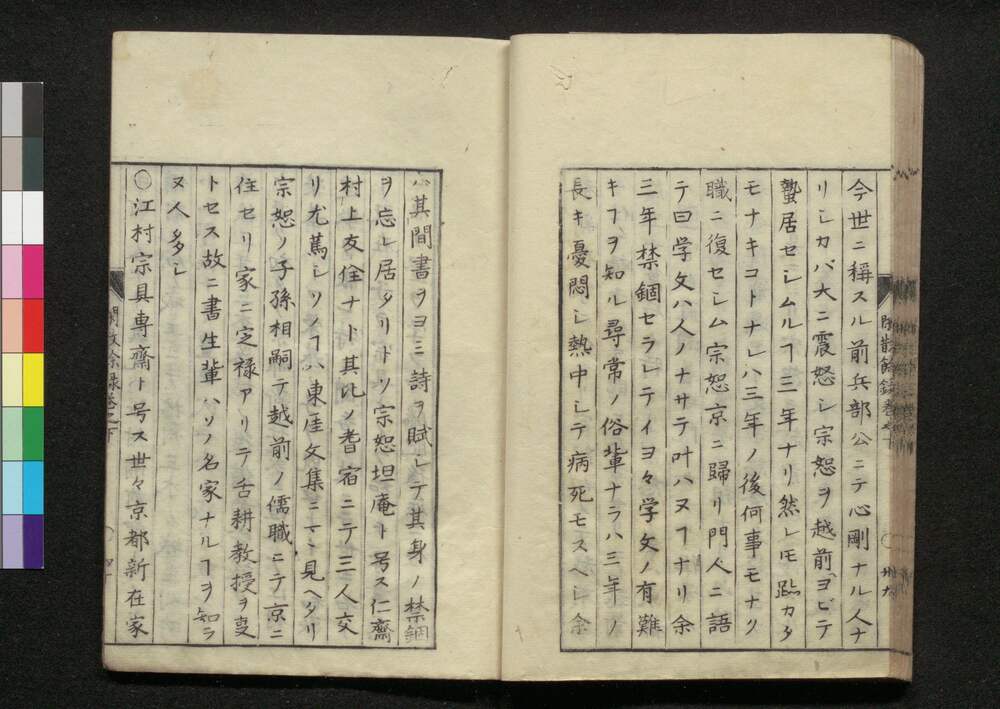 今世ニ稱スル前兵部公ニテ心剛ナル人ナ
リシカバ大ニ震怒シ宗恕ヲ越前ヘヨビテ
蟄居セシムルヿ三年ナリ然レモ跡カタ
モナキコトナレハ三年ノ後何事モナク
職ニ復セシム宗恕京ニ歸リ門人ニ語
テ曰学文ハ人ノナサテ叶ハヌヿナリ余
三年禁錮セラレテイヨ々学文ノ有難
キヿヲ知ル尋常ノ俗輩ナラハ三年ノ
長キ憂悶シ熱中シテ病死モスヘシ余
閒散餘録巻之下
卅九
ハ其間書ヲヨミ詩ヲ賦シテ其身ノ禁錮
ヲ忘レ居タリトソ宗恕坦庵ト号ス仁齋
村上友佺ナド其比ノ耆宿ニテ三人交
リ尤篤シソノヿハ東涯文集ニマヽ見ヘタリ
宗恕ノ子孫相嗣テ越前ノ儒職ニテ京ニ
住セリ家ニ定禄アリテ舌耕教授ヲ亊
トセス故ニ書生輩ハソノ名家ナルヿヲ知ラ
ヌ人多シ
○江村宗具專齋ト号ス世々京都新在家
閒散余録巻之下
四十